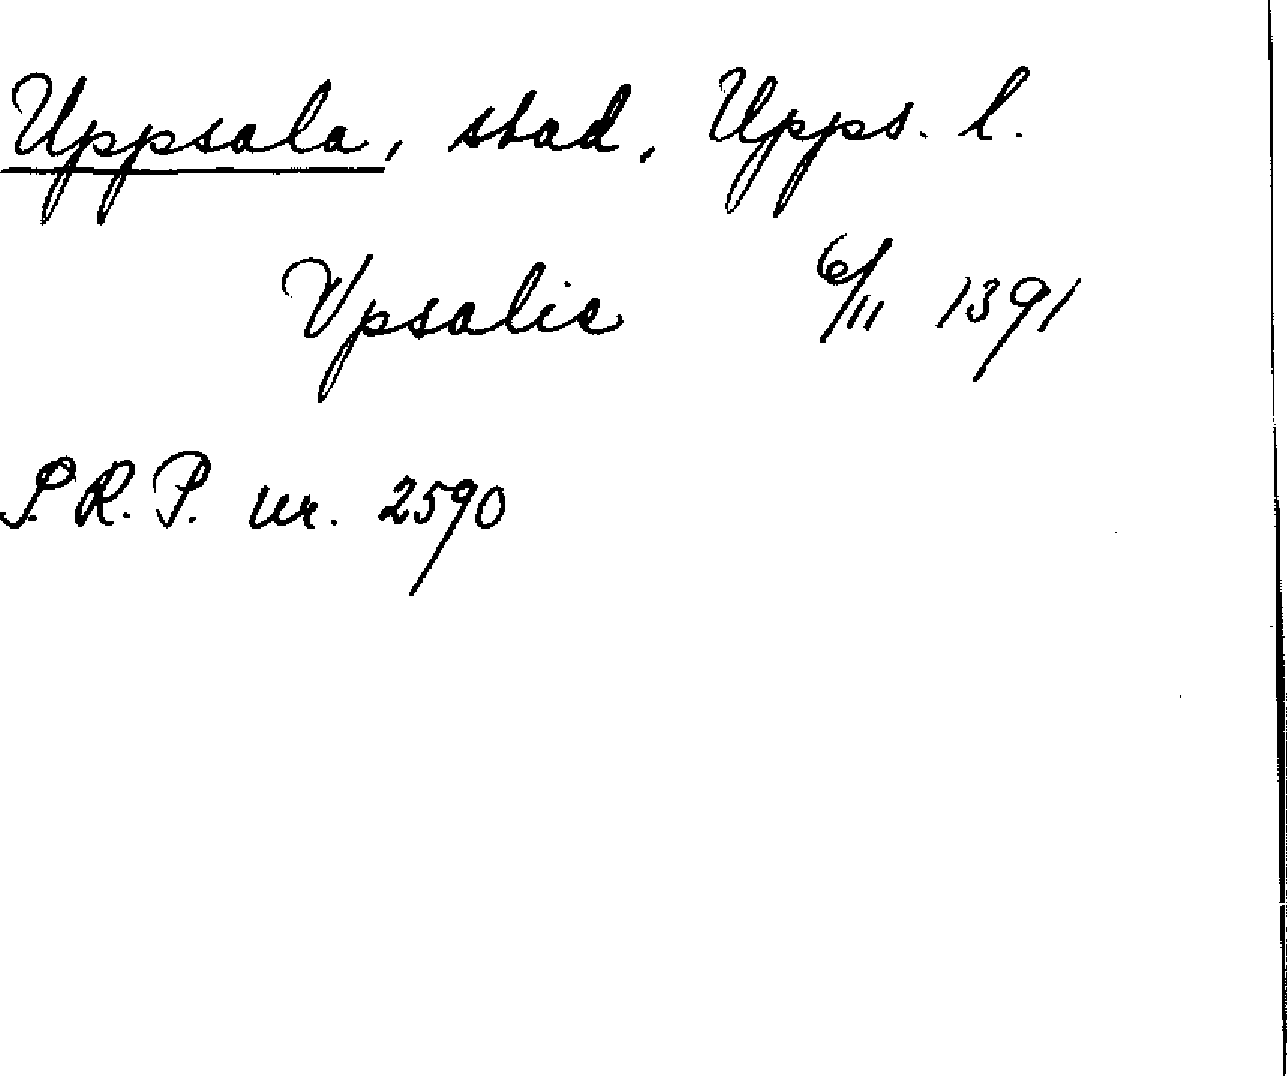 Uppsala, stad, Upps. l.
Vpsalie 6/11 1391
S.R.P. nr. 2590